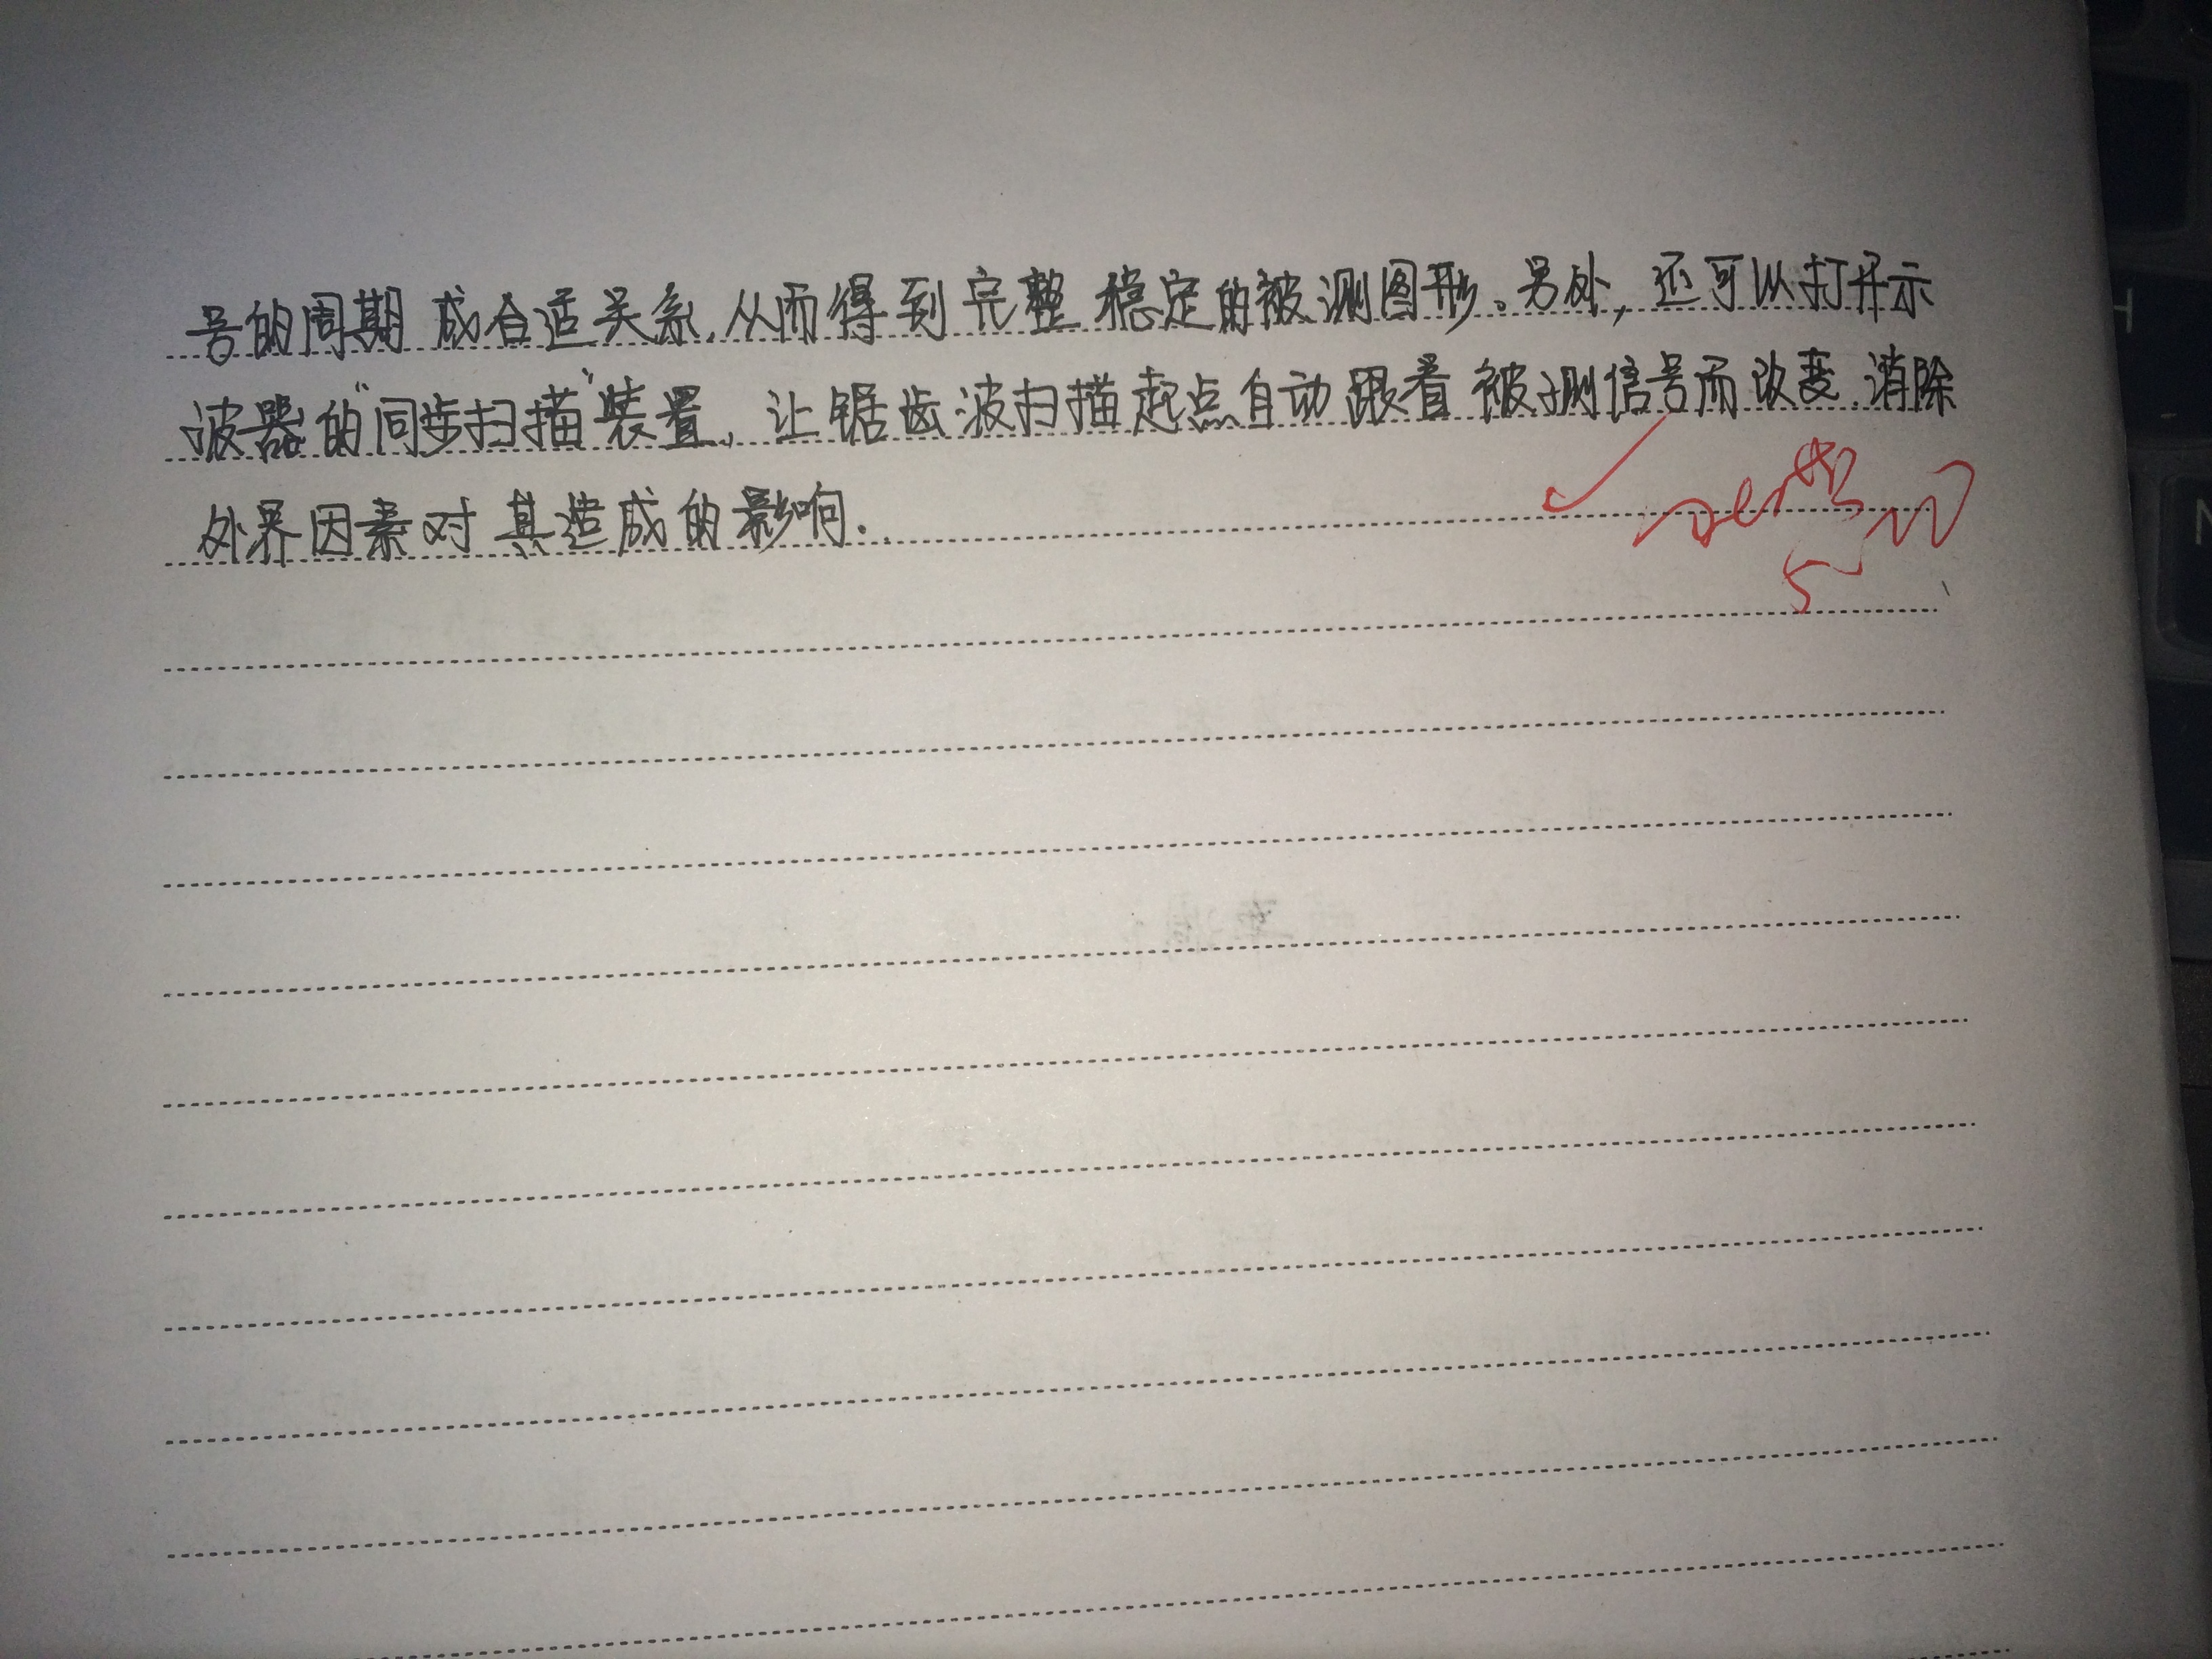 号的周期成合适关系,从而得到完整稳定的被测图形。另外,还可以打开示
波器的“同步扫描”装置,让锯齿波扫描起点自动跟着被测信号而改变.消除
外界因素对其造成的影响.